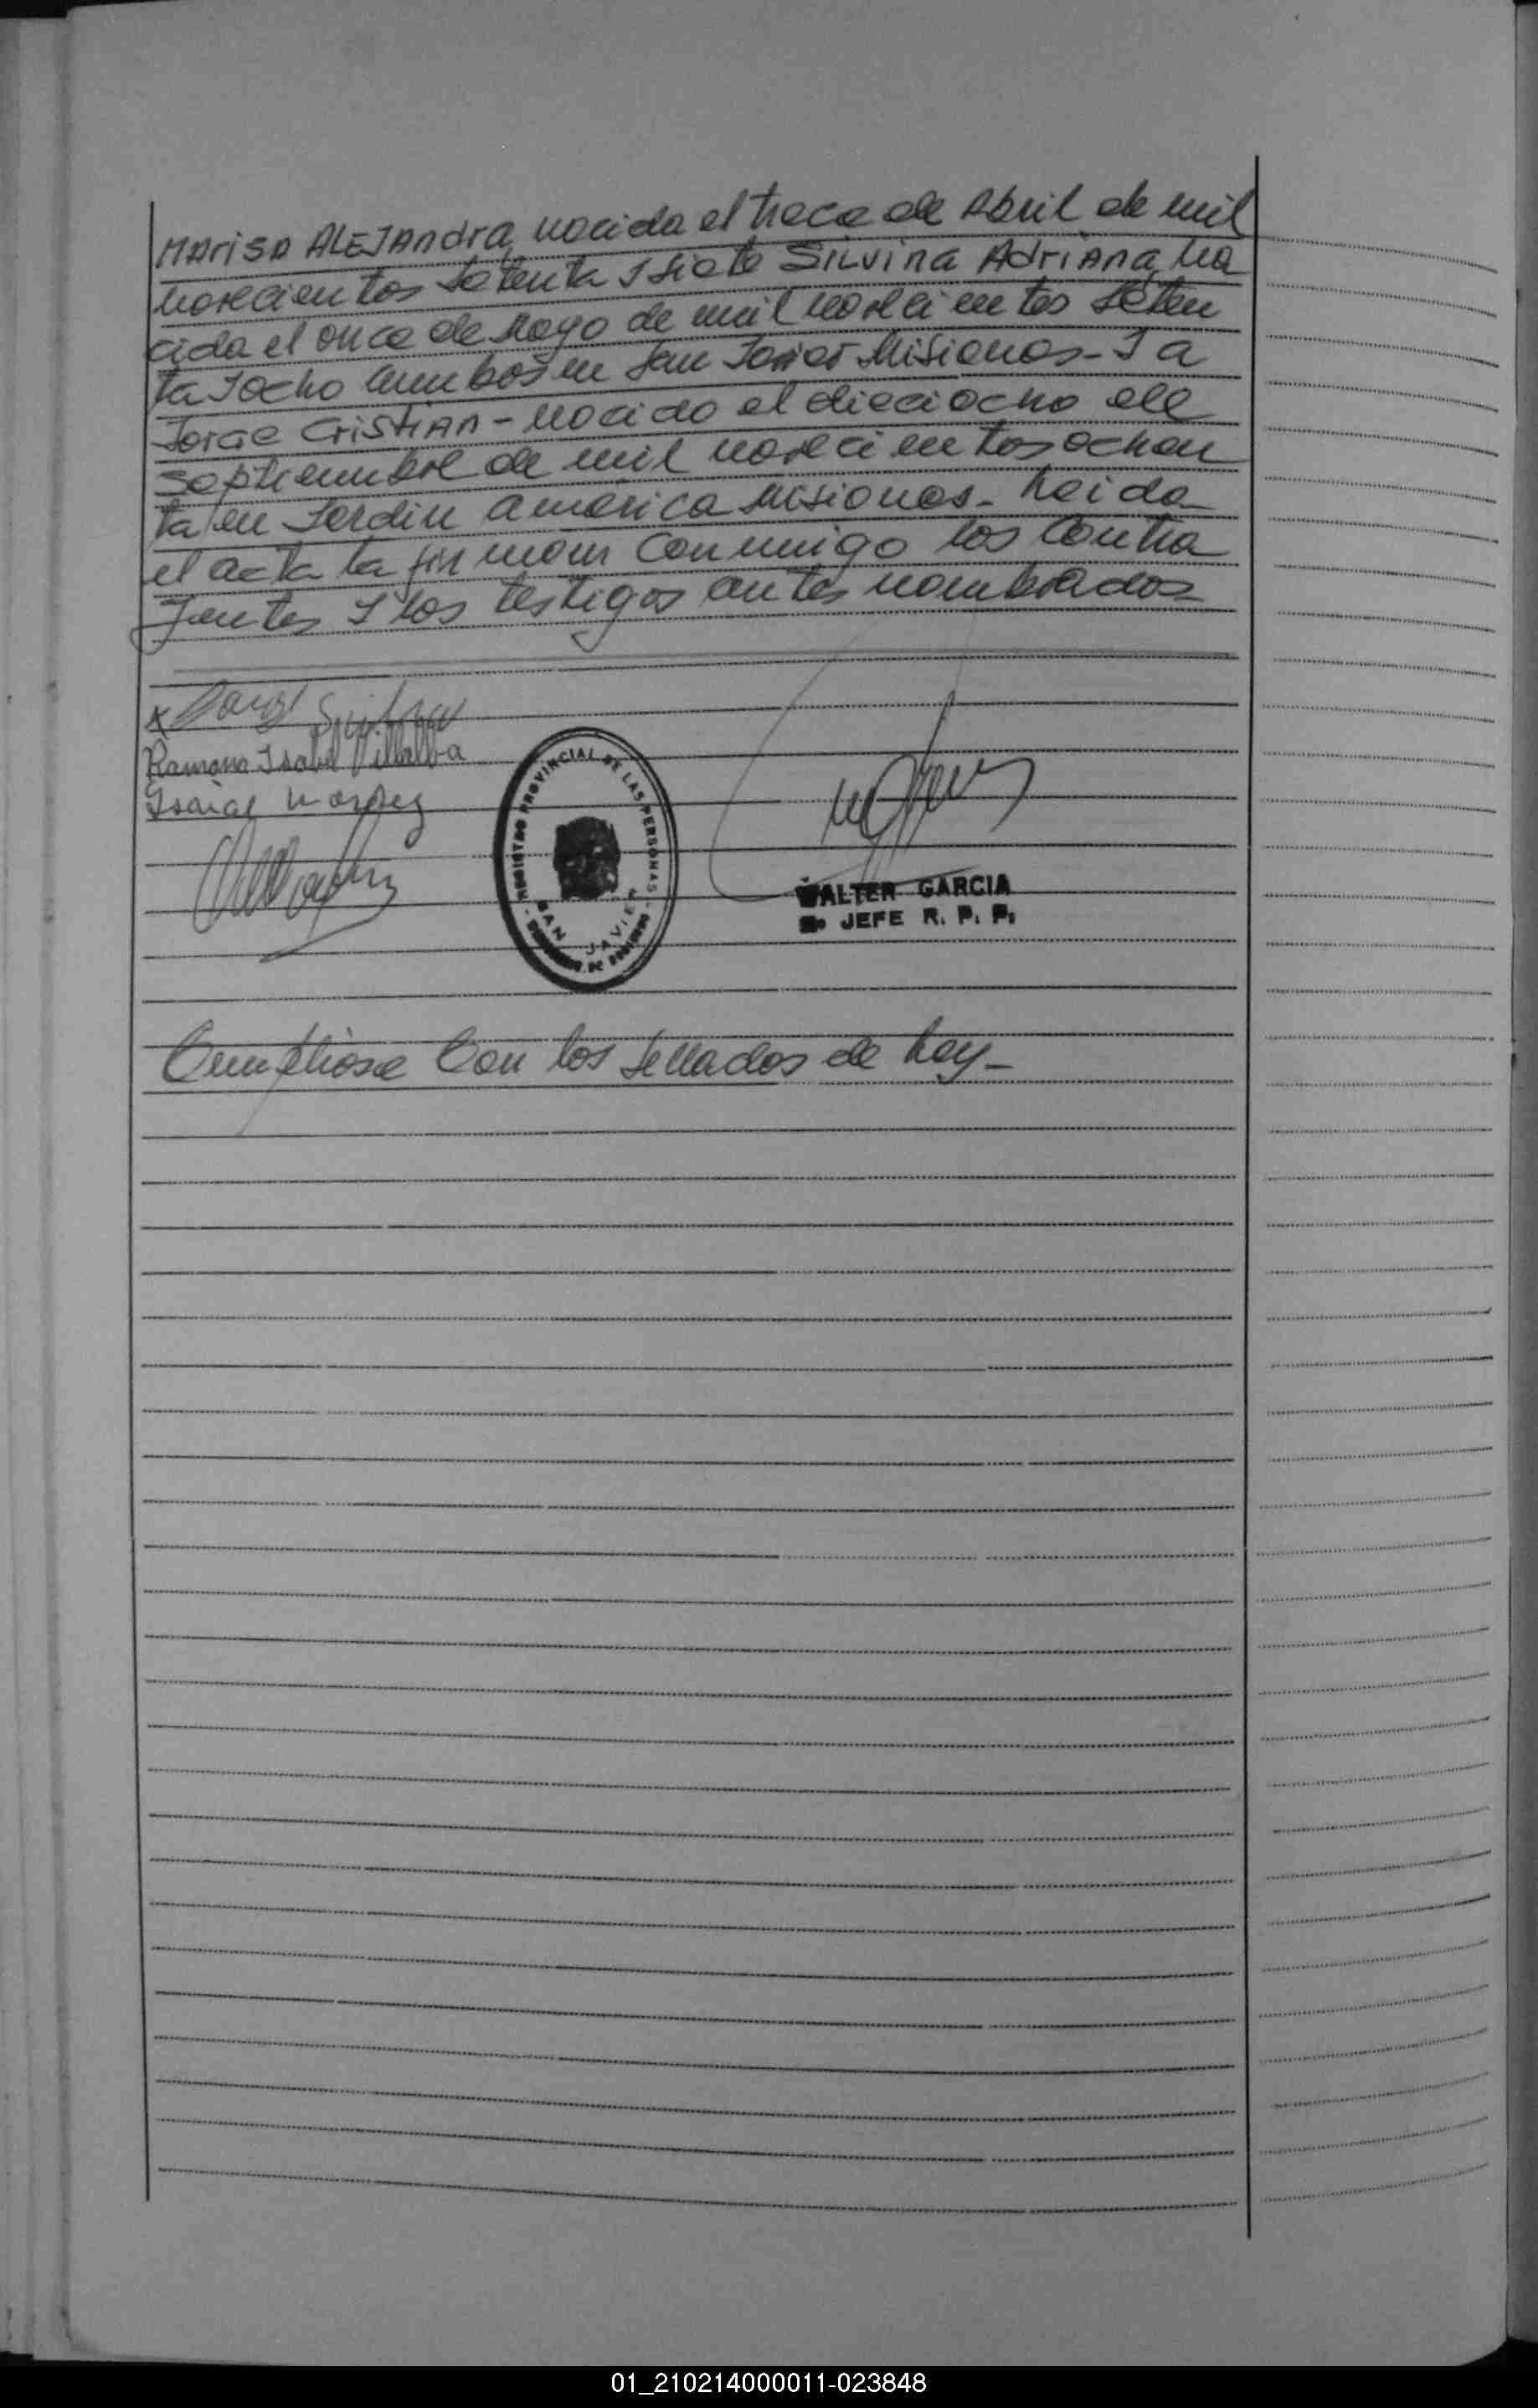 MArisa ALEJAndrA nacida el trece de Abril de mil
novecientos setenta y siete SiLvina AdriAnA, na
cida el once de Mayo de mil novecientos seten
ta y ocho ambos en San Javier Misiones - y a
Jorge CriSTiAn - nacido el dieciocho de
septiembre de mil novecientos ochen
ta en Jardin america Misiones - Leida
el acta la firman conmigo los contra
yentes y los testigos antes nombrados
Ramona Isabel Villalba
REGISTRO PROVINCIAL DE LAS PERSONAS
SAN JAVIER
WALTER GARCIA
JEFE R. P. P.
Cumpliose con los sellados de ley -
01_210214000011-023848